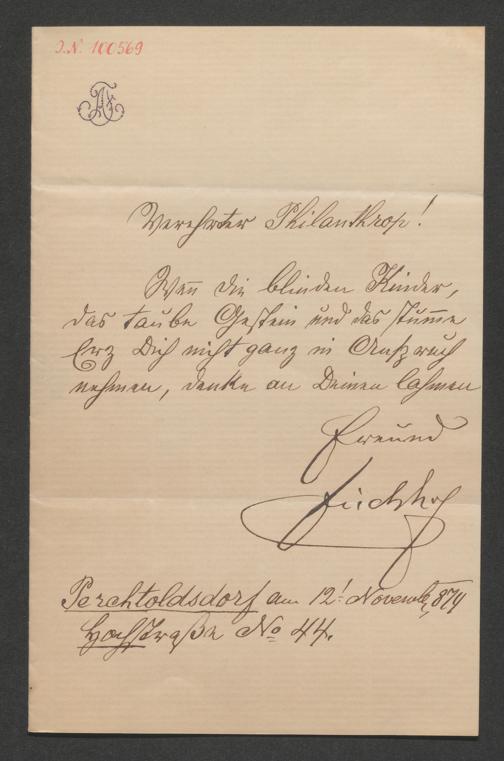 J.N. 100569
Verehrter Philanthrop!
Wen̄ die blinden Kinder,
das taube Gestein und das stum̄e
Erz Dich nicht ganz in Anspruch
nehmen, denke an Deinen lahmen
Freund
Perchtoldsdorf am 12! Novemb. 874
Hochstraße No 44.